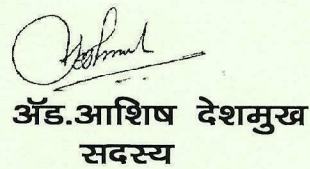 ॲड.आशिष देशमुख
सदस्य